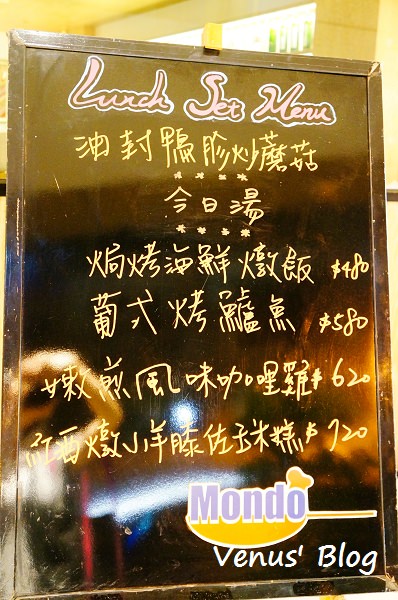 Lunch Set Menu
油封鴨胗炒蘑菇
****
今日湯
****
焗烤海鮮燉飯 $480
葡式烤鱸魚 $580
嫩煎風味咖哩雞 $620
紅酒燉小羊膝佐玉米糕 $720
Mondo
Venus' Blog